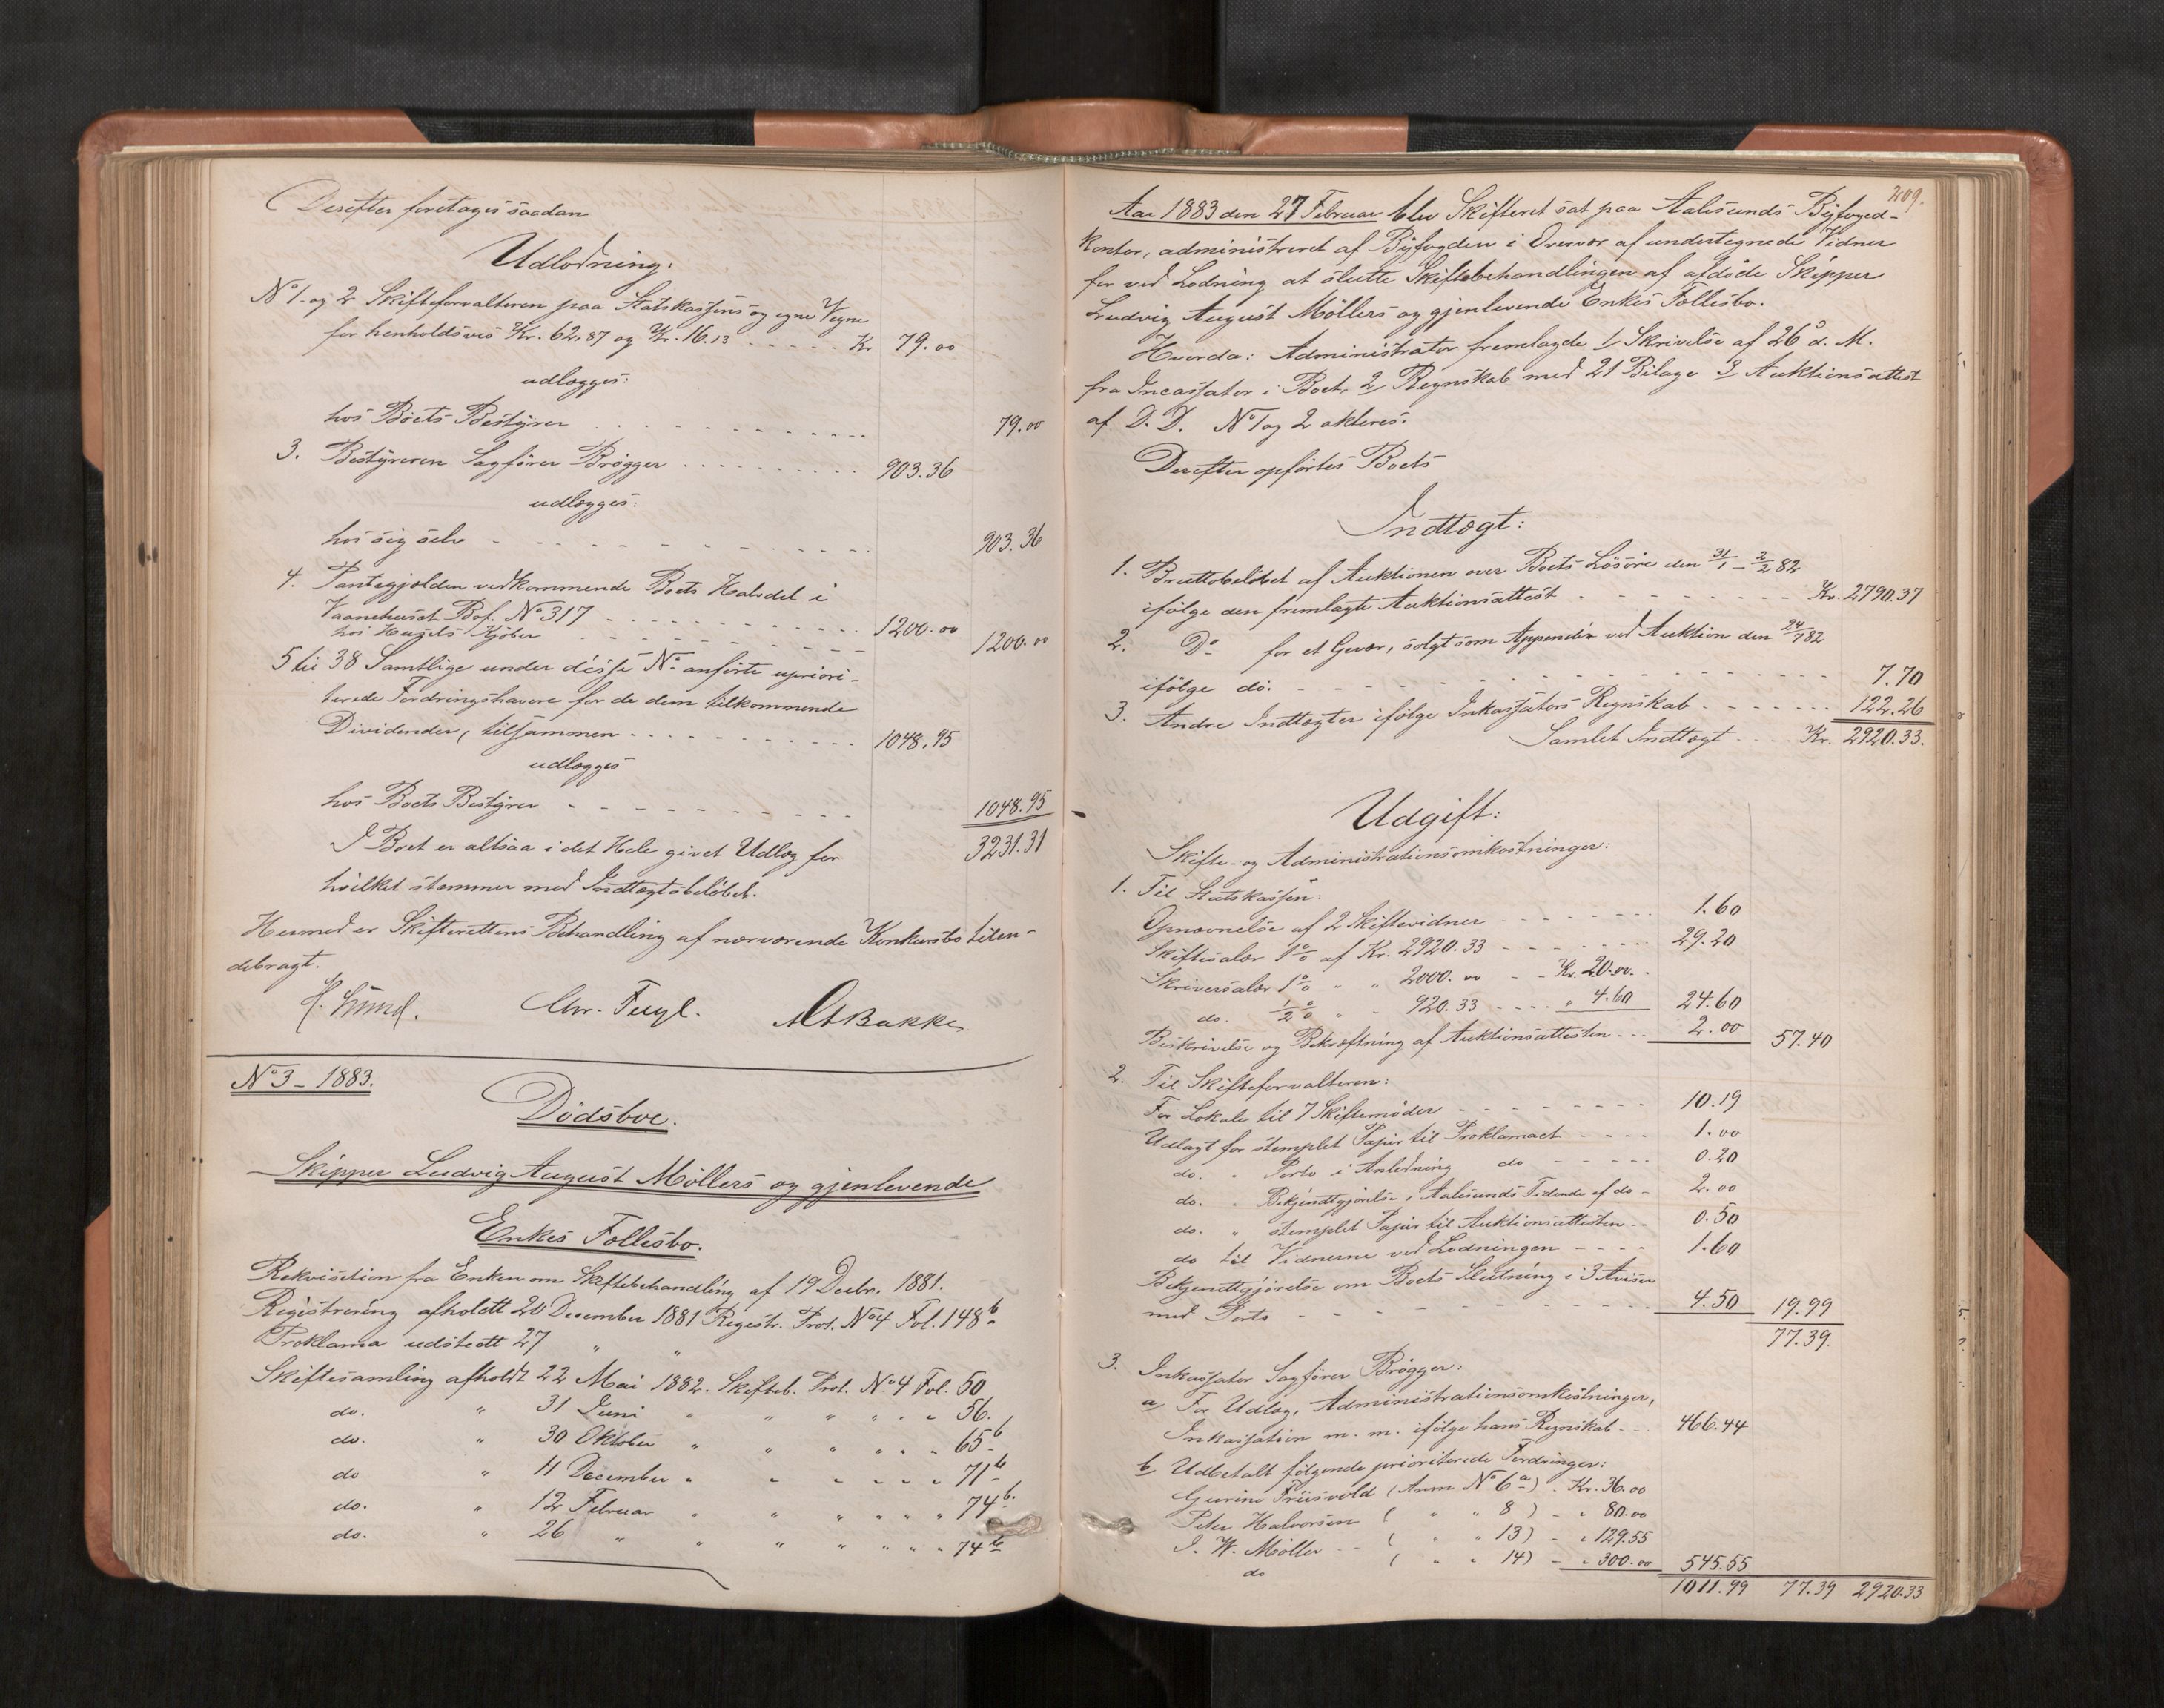 Derefter foretages saadan
Udlodning:
No 1 og 2 Skifteforvalteren paa Statskassens og egne Vegne
for henholdsvis Kr. 62,87 og Kr. 16.13 - - - - - Kr 79.00
udlægges:
hos Boets Bestyrer - - - - - - - - - - - 79.00
3. Bestyreren Sagfører Brøgger - - - - - - - - - 903.36
udlægges:
hos sig selv - - - - - - - - - - - - 903.36
4. Pantegjælden vedkommende Boets Halvdel i
Vaanehuset Bof. No 317 - - - - - - - - - - 1200.00
hos Husets Kjøber - - - - - - - - - - 1200.00
5 til 38 Samtlige under disse No anførte upriori-
terede Fordringshavere for de dem tilkommende
Dividender, tilsammen - - - - - - - - - - 1048.95
udlægges
hos Boets Bestyrer - - - - - - - - - 1048.95
I Boet er altsaa i det Hele givet Udlæg for 3231.31
hvilket stemmer med Indtægtsbeløbet.
Hermed er Skifterettens Behandling af nærværende Konkursbo tilen-
debragt.
Chr. Fugl. A Bakke
No 3 - 1883.
Dödsboe.
Skipper Ludvig August Möllers og gjenlevende
Enkes Fællesbo.
Rekvisition fra Enken om Skiftebehandling af 19 Decbr. 1881.
Registrering afholdt 20 December 1881 Registr. Prot. No 4 Fol. 148 b
Proklama udstedt 27 " "
Skiftesamling afholdt 22 Mai 1882. Skifteb. Prot. No 4 Fol. 50
do. " 31 Juni " " " " " 56.
do. " 30 Oktober " " " " " 65 b
do " 11 December " " " " " 71 b
do. " 12 Februar " " " " " 74 b.
do. " 26 " " " " " " 74 b
209.
Aar 1883 den 27 Februar blev Skifteret sat paa Aalesunds Byfoged-
kontor, administreret af Byfogden i Overvær af undertegnede Vidner
for ved Lodning at slutte Skiftebehandlingen af afdöde Skipper
Ludvig August Möllers og gjenlevende Enkes Fællesbo.
Hvorda: Administrator fremlagde 1/ Skrivelse af 26 d. M.
fra Incassator i Boet, 2/ Regnskab med 21 Bilage 3/ Auktionsattest
af D. D. No 1 og 2 akteres.
Derefter opførtes Boets
Indtægt:
1. Bruttobeløbet af Auktionen over Boets Lösöre den 31/1 - 2/2 82
ifölge den fremlagte Auktionsattest - - - - - - - - Kr. 2790.37
2. Do for et Gevær, solgt som Appendix ved Auktion den 24/7 82
ifølge do. - - - - - - - - - - - - - - - - - - 7.70
3. Andre Indtægter ifølge Inkassators Regnskab - - - - - - - 122.26
Samlet Indtægt - - - - Kr. 2920.33.
Udgift:
Skifte- og Administrationsomkostninger:
1. Til Statskassen:
Opnævnelse af 2 Skiftevidner - - - - - - 1.60
Skiftesalær 1 % af Kr. 2920.33 - - - - - - 29.20
Skriversalær 1 % " " 2000.00 - - Kr. 20.00.
do. 1/2 % " " 920.33 - - - - " 4.60 24.60
Beskrivelse og Bekræftning af Auktionsattesten - - - 2.00 57.40
2. Til Skifteforvalteren:
For Lokale til 7 Skiftemøder - - - - - - - 10.19
Udlagt for stemplet Papir til Proklamaet - - - - 1.00
do. " Porto i Anledning do - - - - - 0.20
do. " Bekjendtgjørelse i Aalesunds Tidende af do - 2.00
do. " stemplet Papir til Auktionsattesten - - 0.50
do til Vidnerne ved Lodningen - - - - 1.60
Bekjendtgjørelse om Boets Slutning i 3 Aviser
med Porto - - - - - - - - - - - - 4.50 19.99
77.39.
3. Inkassator Sagfører Brøgger:
a/ For Udlæg, Administrationsomkostninger,
Inkassation m. m. ifølge hans Regnskab - - - 466.44
b/ Udbetalt følgende prioriterede Fordringer:
Gurine Friisvold (Anm No 6 a) . Kr. 36.00
Peter Halvorsen ( " " 8 ) - " 80.00
J. W. Møller - - ( " " 13) - " 129.55
do ( " " 14) - " 300.00 545.55
1011.99 77.39 2920.33